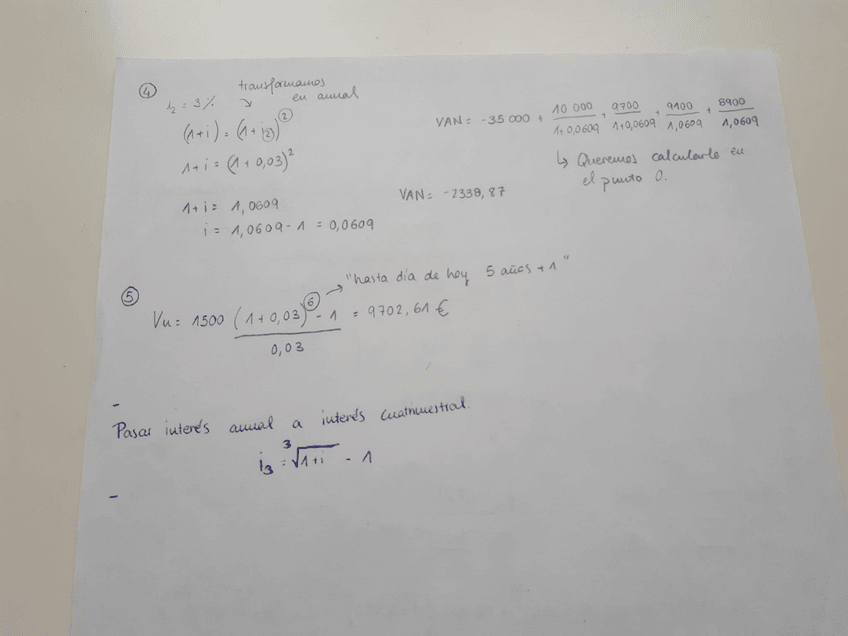 ④ transformamos
i₂ = 3% ↘ en anual
(1+i) = (1+i②)^②
1+i = (1+0,03)²
1+i = 1,0609
i = 1,0609 - 1 = 0,0609
VAN = -35 000 + 10 000/1+0,0609 + 9700/1+0,0609 + 9100/1,0609 + 8900/1,0609
↳ Queremos calcularle en
el punto 0.
VAN = -2338,87
⑤ "hasta día de hoy 5 años + 1"
Vu = 1500 (1+0,03)^⑥ - 1 / 0,03 = 9702,61 €
-
Pasar interés anual a interés cuatrimestral.
i₃ = ³√1+i - 1
-